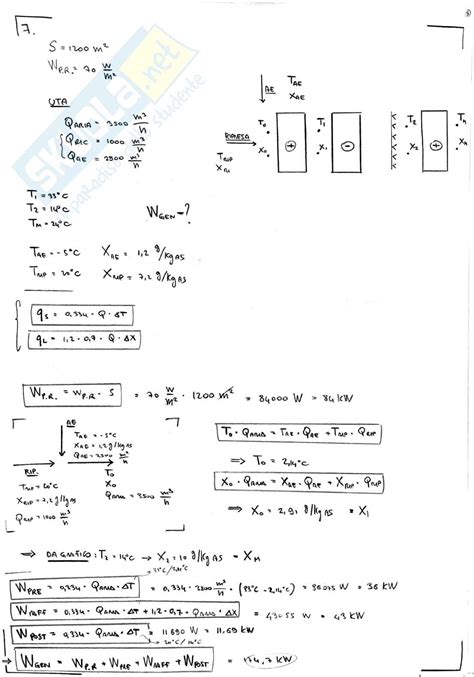 7.
S = 1200 m²
W P.R. = 70 W/m²
UTA
Q ARIA = 3500 m³/h
Q RIC = 1000 m³/h
Q AE = 2500 m³/h
AE
T AE
X AE
RIPRESA
T RIP
T0
X0
+
T1
X1
-
T2
X2
+
T1 = 33°C
T2 = 14°C
TM = 24°C
W GEN = ?
T AE = -5°C X AE = 1,2 g/kg AS
T RIP = 20°C X RIP = 7,2 g/kg AS
qS = 0,334 · Q · ΔT
qL = 1,2 · 0,7 · Q · ΔX
W P.R. = W P.R. · S = 70 W/m² · 1200 m² = 84000 W = 84 KW
AE
T AE = -5°C
X AE = 1,2 g/kg AS
Q AE = 2500 m³/h
RIP.
T RIP = 20°C
X RIP = 7,2 g/kg AS
Q RIP = 1000 m³/h
T0
X0
Q ARIA = 3500 m³/h
T0 · Q ARIA = T AE · Q AE + T RIP · Q RIP
⇒ T0 = 2,14°C
X0 · Q ARIA = X AE · Q AE + X RIP · Q RIP
⇒ X0 = 2,91 g/kg AS = X1
⇒ DA GRAFICO: T2 = 14°C → X2 = 10 g/kg AS = XM
33°C/2,14°C
W PRE = 0,334 · Q ARIA · ΔT = 0,334 · 3500 m³/h · (33°C - 2,14°C) = 36075 W = 36 KW
W RAFF = 0,334 · Q ARIA · ΔT + 1,2 · 0,7 · Q ARIA · ΔX = 43055 W = 43 KW
W POST = 0,334 · Q ARIA · ΔT = 11690 W = 11,69 KW
W GEN = W P.R + W PRE + W RAFF + W POST = 174,7 KW
SKUOLA.net
paradiso dello studente